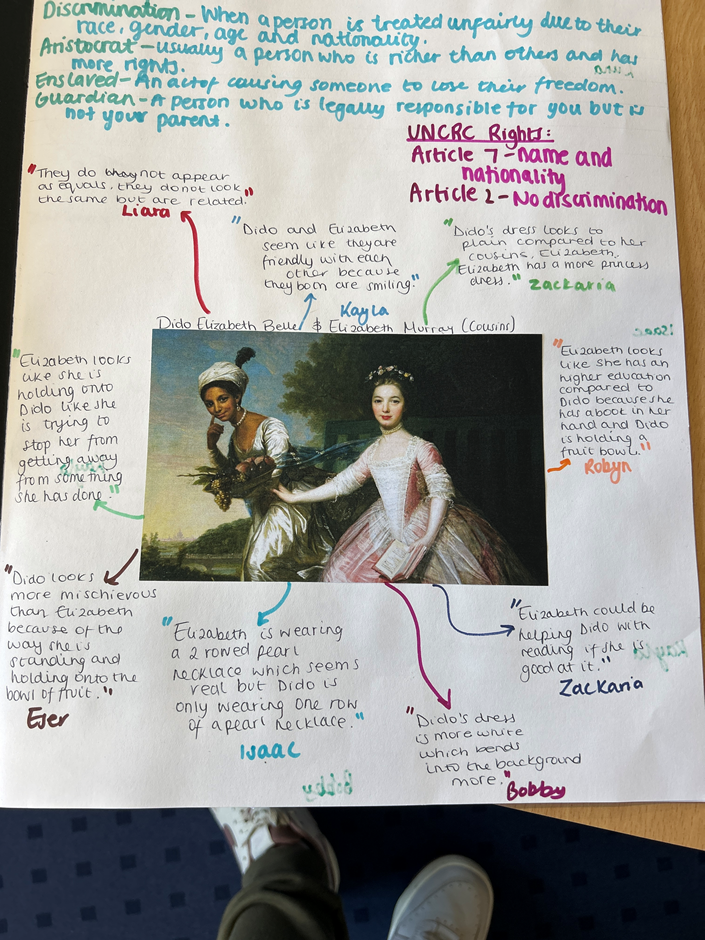 Discrimination - When a person is treated unfairly due to their
race, gender, age and nationality.
Aristocrat - usually a person who is richer than others and has
more rights.
Enslaved - An act of causing someone to lose their freedom.
Guardian - A person who is legally responsible for you but is
not your parent.
UNCRC Rights:
Article 7 - name and
nationality
Article 2 - No discrimination
"They do not appear
as equals, they do not look
the same but are related."
Liara
"Dido and Elizabeth
seem like they are
friendly with each
other because
they both are smiling."
Kayla
"Dido's dress looks to
plain compared to her
cousins, Elizabeth.
Elizabeth has a more princess
dress."
Zackaria
Dido Elizabeth Belle & Elizabeth Murray (cousins)
"Elizabeth looks
like she is
holding onto
Dido like she
is trying to
stop her from
getting away
from something
she has done."
"Elizabeth looks
like she has an
higher education
compared to
Dido because she
has a book in her
hand and Dido
is holding a
fruit bowl."
Robyn
"Dido looks
more mischievous
than Elizabeth
because of the
way she is
standing and
holding onto the
bowl of fruit."
Eser
"Elizabeth is wearing
a 2 rowed pearl
necklace which seems
real but Dido is
only wearing one row
of a pearl necklace."
Isaac
"Dido's dress
is more white
which bends
into the background
more."
Bobby
"Elizabeth could be
helping Dido with
reading if she is
good at it."
Zackaria
Isaac
Kayla
Bobby